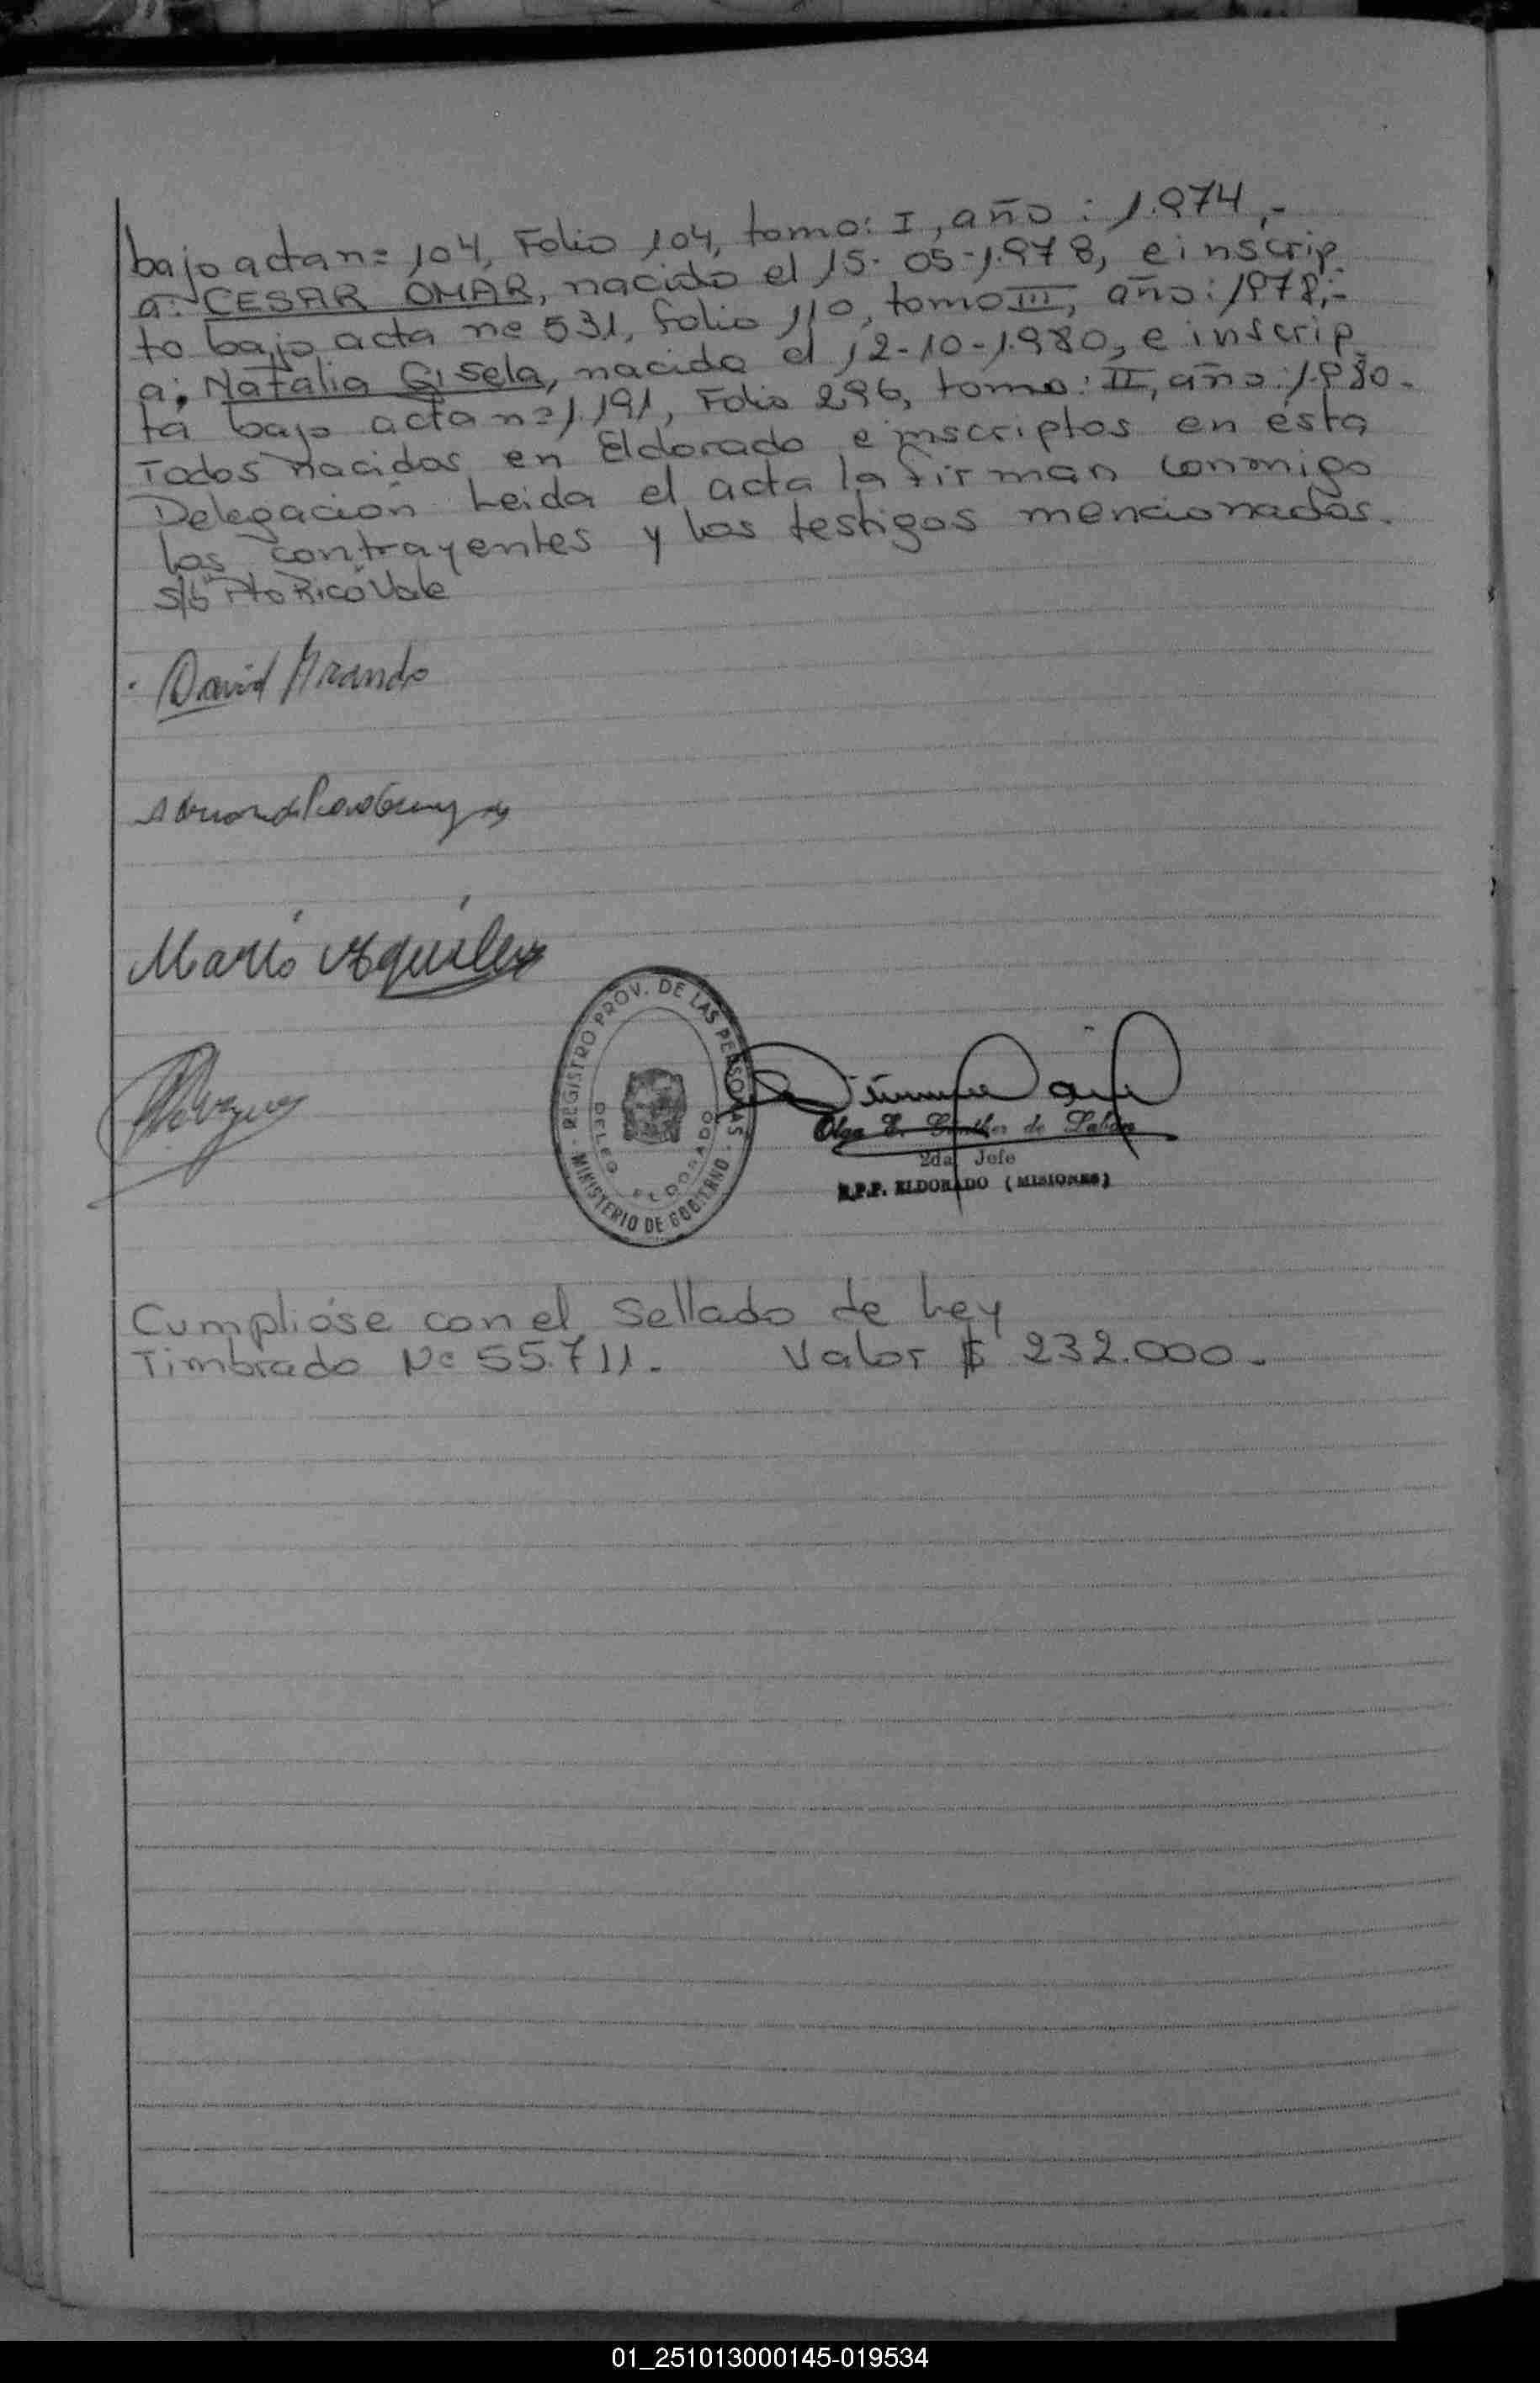 bajo acta n= 104, Folio 104, tomo: I, año: 1.974,-
a: CESAR OMAR, nacido el 15-05-1.978, e inscrip
to bajo acta nº 531, folio 110, tomo III, año: 1978,-
a: Natalia Gisela, nacida el 12-10-1.980, e inscrip
ta bajo acta n=1.191, Folio 296, tomo: II, año: 1.980-
Todos nacidos en Eldorado e inscriptos en ésta
Delegación. Leida el acta la firman conmigo
los contrayentes y los testigos mencionados.
s/b Pto Rico Vale
David
Mario
REGISTRO PROV. DE LAS PERSONAS
DELEG. ELDORADO
MINISTERIO DE GOBIERNO
Olga E. de
2da. Jefe
R.P.P. ELDORADO (MISIONES)
Cumplióse con el Sellado de Ley
Timbrado Nº 55.711.- Valor $ 232.000.-
01_251013000145-019534